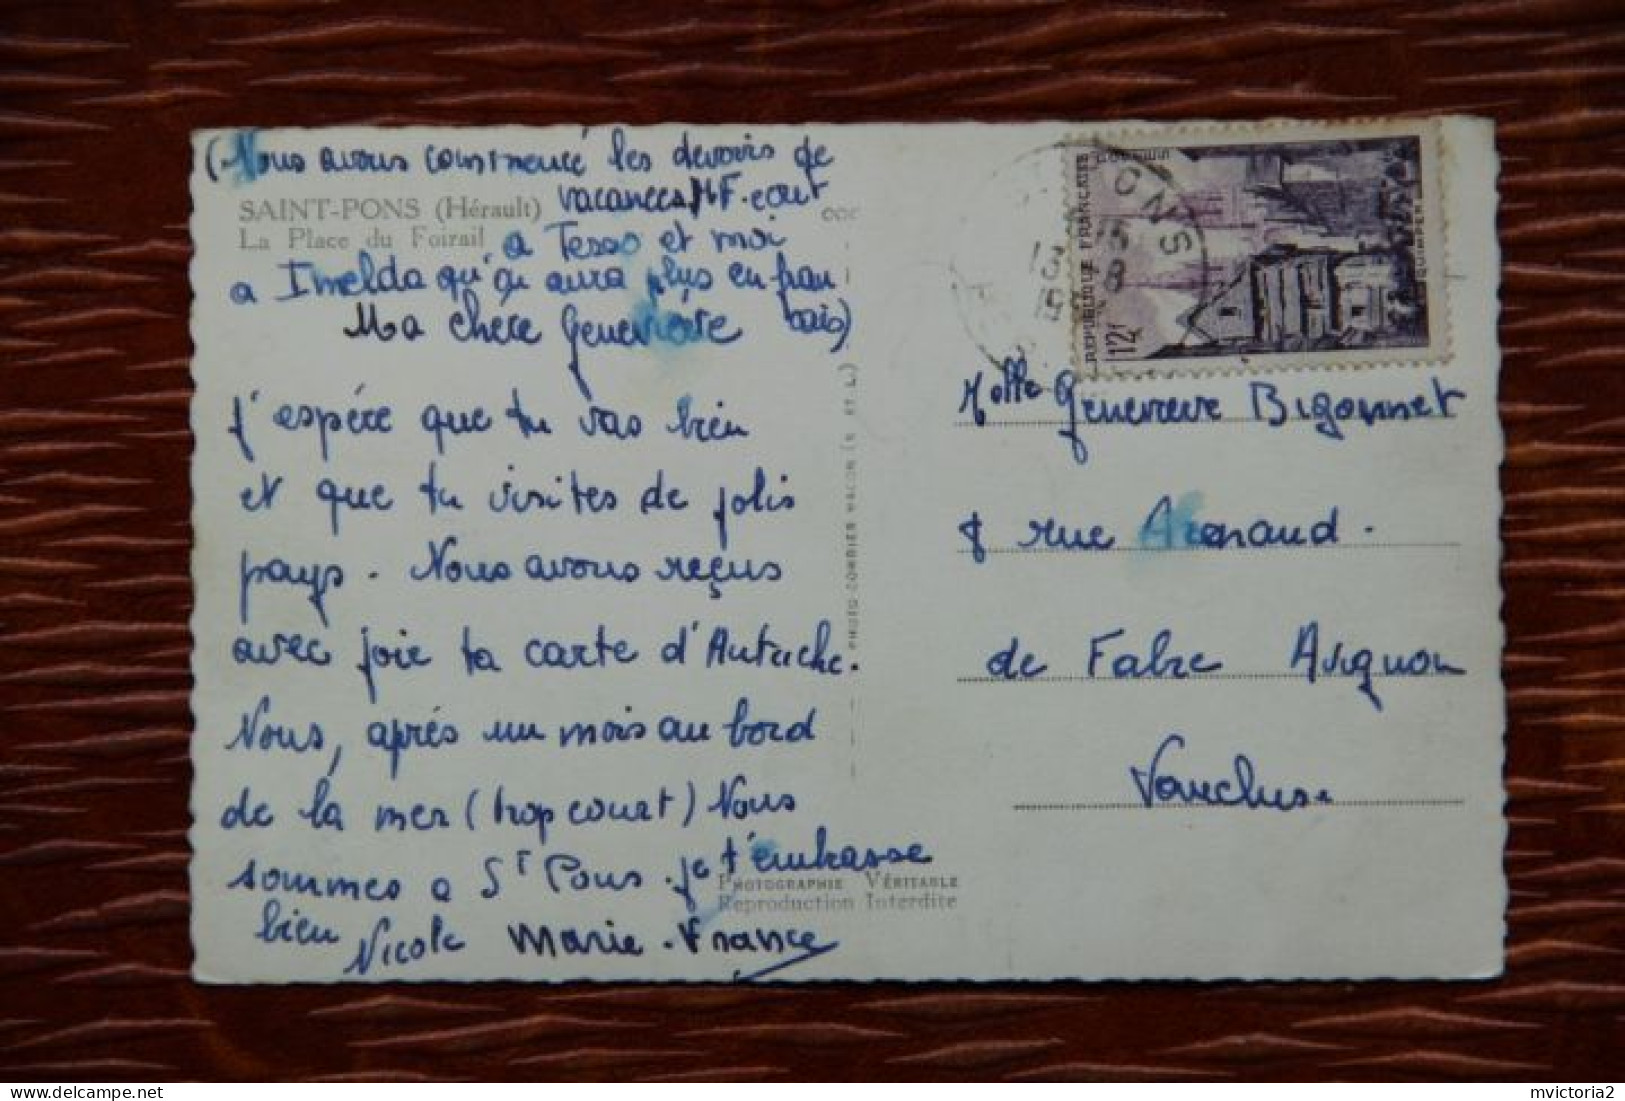 (Nous avons commencé les devoirs de
vacances, M F. écrit
SAINT-PONS (Hérault)
La Place du Foirail
a Tesso et moi
a Imelda qu'on aura plus en fran
cais)
Ma chère Geneviève
J'espére que tu vas bien
et que tu visites de jolis
pays. Nous avons reçus
avec joie ta carte d'Autriche.
Nous, aprés un mois au bord
de la mer (trop court) Nous
sommes a St Pons. je t'embrasse
bien Nicole Marie-France
PHOTOGRAPHIE VÉRITABLE
Reproduction Interdite
PHOTO-COMBIER MACON (S. ET L.)
PONS
15
13 - 8
REPUBLIQUE FRANÇAISE
12F
QUIMPER
Melle Genevieve Bigonnet
8 rue Arnaud
de Fabre Avignon
Vaucluse
mvictoria2